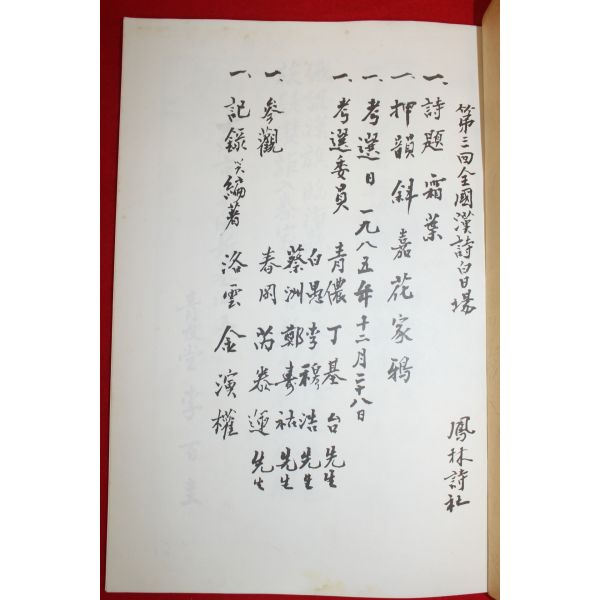 第三回全國漢詩白日場 鳳林詩社
一、詩題 霜葉
一、押韻 斜 嘉 花 家 鴉
一、考選日 一九八五年十二月二十八日
一、考選委員 青儂 丁基台 先生
白愚 李穆浩 先生
蔡洲 鄭壽祐 先生
一、參觀 春岡 芮泰運 先生
一、記錄 및 編著 洛雲 金演權
李百圭